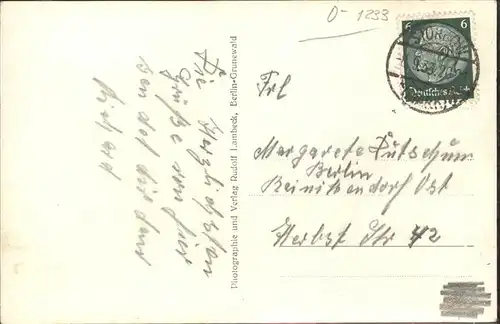 Die Herzlichsten
Grüße von hier
sendet dir dein
Richard
Photographie und Verlag Rudolf Lambeck, Berlin-Grunewald
0-1233
6
Deutsches
Frl
Margarete
Berlin
Reinickendorf Ost
Herbst Str 42